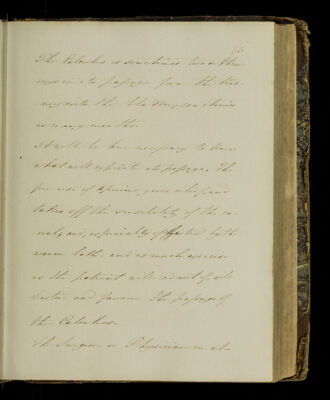 The Calculus is sometimes two or three
in its passage from the kid-
ney into the bladder, sometimes
as many months.
It will be here necessary to know
what will expedite its passage. The
free use of Opium, gives relief, and
takes off the sensibility of the ca-
nal; and, especially if assisted by the
warm bath, and as much exercise
as the patient will admit of, will
hasten and favour the passage of
the Calculus.
The Surgeon or Physician in at-